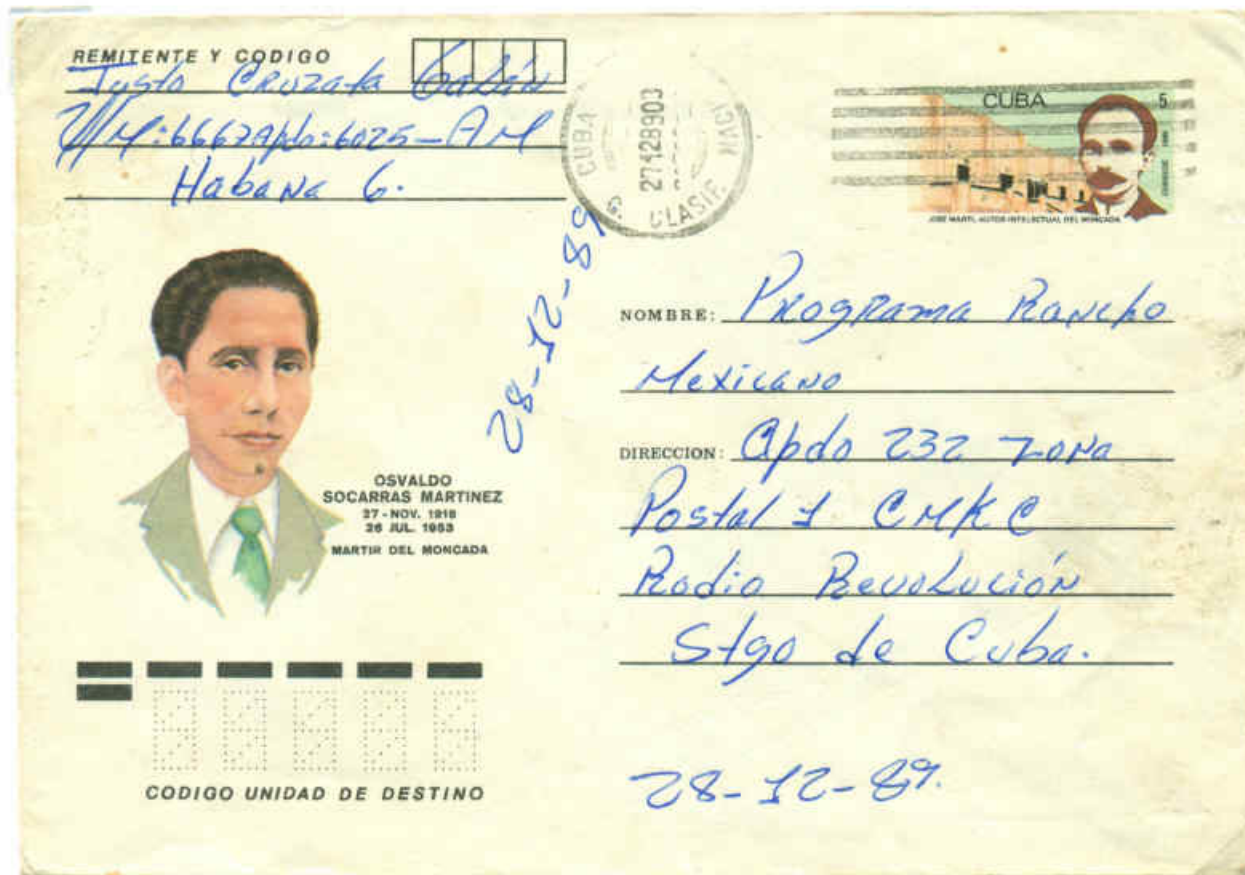 REMITENTE Y CODIGO
Justo Cruzata Galán
UM:6667Apdo:6025-AM
Habana 6.
CUBA
27128903
G. CLASIF.
CUBA 5
JOSE MARTI, AUTOR INTELECTUAL DEL MONCADA
28-12-89
NOMBRE: Programa Rancho
Mexicano
DIRECCION: Apdo 232 Zona
Postal 1 CMKC
Radio Revolución
Stgo de Cuba.
28-12-89.
OSVALDO
SOCARRAS MARTINEZ
27 - NOV. 1918
26 JUL. 1953
MARTIR DEL MONCADA
CODIGO UNIDAD DE DESTINO